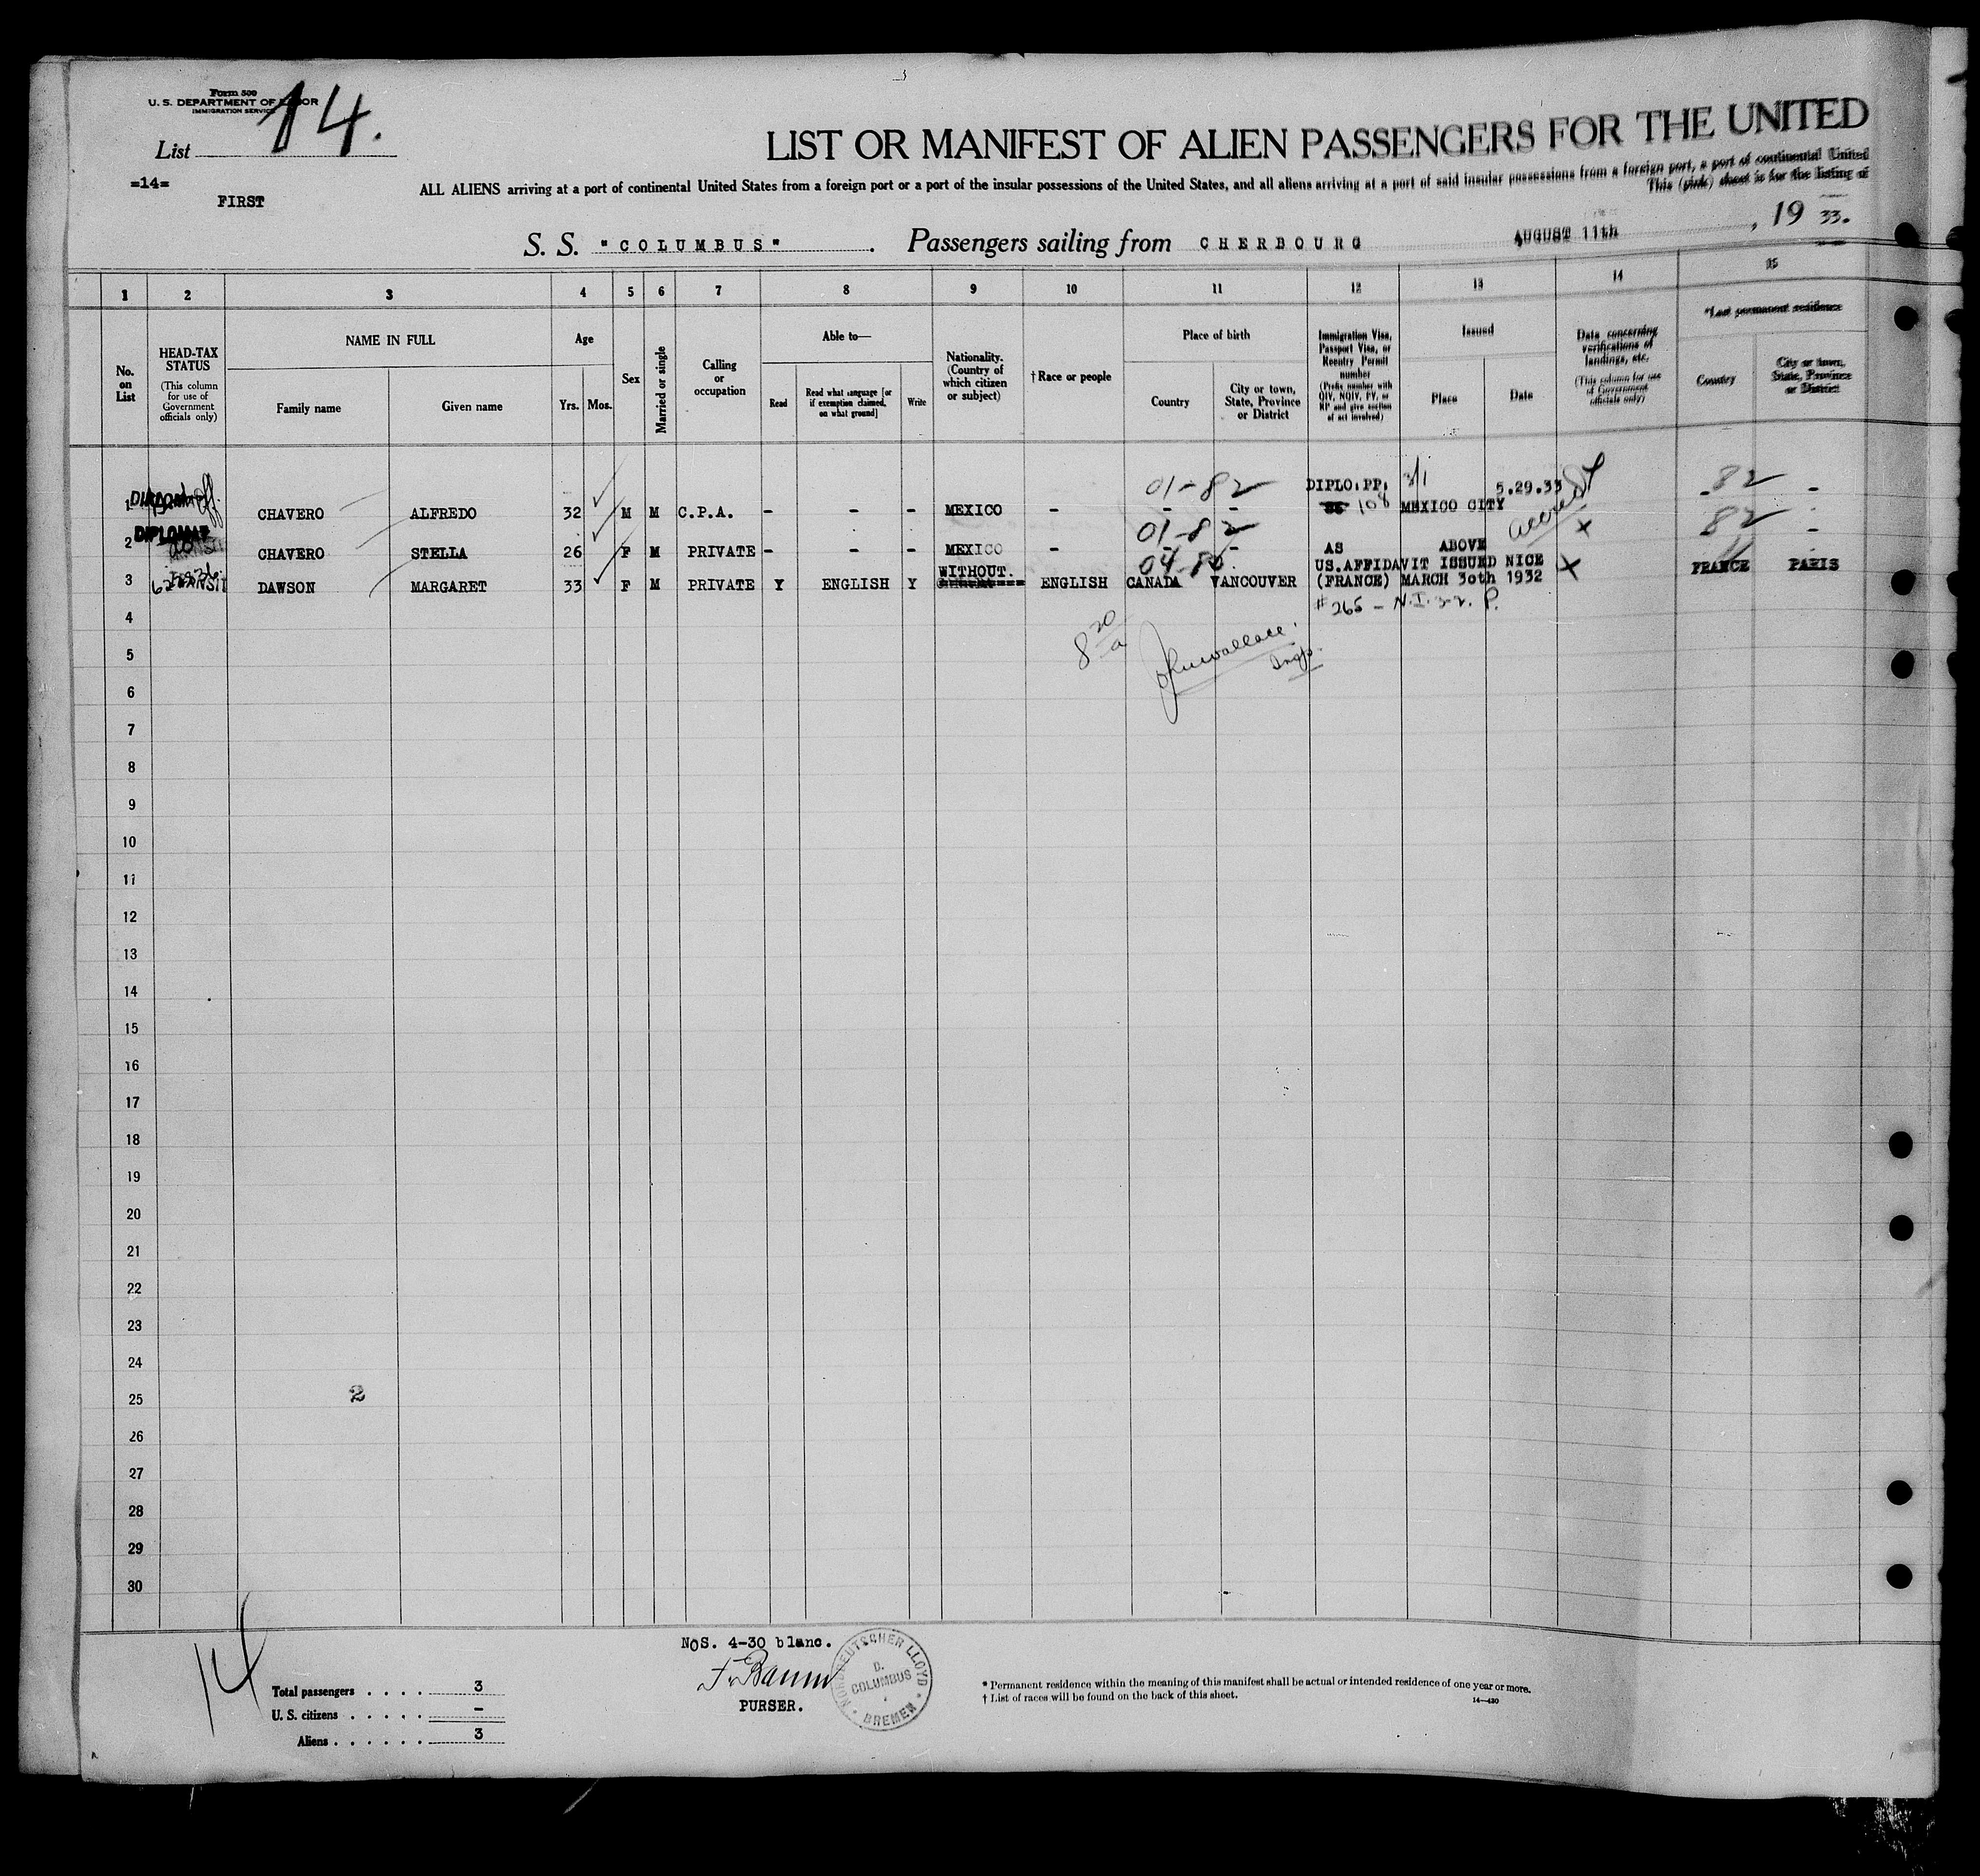 Form 500
U. S. DEPARTMENT OF LABOR
IMMIGRATION SERVICE
List 14.
=14=
FIRST
LIST OR MANIFEST OF ALIEN PASSENGERS FOR THE UNITED
ALL ALIENS arriving at a port of continental United States from a foreign port or a port of the insular possessions of the United States, and all aliens arriving at a port of said insular possessions from a foreign port, a port of continental United
This (pink) sheet is for the listing of
S. S. "COLUMBUS". Passengers sailing from CHERBOURG AUGUST 11th, 19 33.
1 2 3 4 5 6 7 8 9 10 11 12 13 14 15
No. on List
HEAD-TAX STATUS
(This column for use of Government officials only)
NAME IN FULL
Family name Given name
Age
Yrs. Mos.
Sex
Married or single
Calling or occupation
Able to—
Read
Read what language [or if exemption claimed, on what ground]
Write
Nationality. (Country of which citizen or subject)
† Race or people
Place of birth
Country
City or town, State, Province or District
Immigration Visa, Passport Visa, or Reentry Permit number
(Prefix number with QIV, NQIV, PV, or RP and give section of act involved)
Issued
Place Date
Data concerning verifications of landings, etc.
(This column for use of Government officials only)
*Last permanent residence
Country
City or town, State, Province or District
01-82 DIPLO.PP. 5.29.33 82 -
1 CHAVERO ALFREDO 32 M M C.P.A. - - - MEXICO - - - 108 MEXICO CITY
DIPLOMAT 01-82 82
2 CHAVERO STELLA 26 F M PRIVATE - - - MEXICO - - - AS ABOVE X -
WITHOUT. 04-80 US.AFFIDAVIT ISSUED NICE X FRANCE PARIS
3 TRANSIT DAWSON MARGARET 33 F M PRIVATE Y ENGLISH Y ENGLISH CANADA VANCOUVER (FRANCE) MARCH 30th 1932
# 265 - N.I. 3-2. P.
4
8 20/a John Wallace.
5
Insp.
6
7
8
9
10
11
12
13
14
15
16
17
18
19
20
21
22
23
24
25 2
26
27
28
29
30
14
NOS. 4-30 blanc.
PURSER.
NORDDEUTSCHER LLOYD
D. COLUMBUS
BREMEN
Total passengers . . . . 3
U. S. citizens . . . . . -
Aliens . . . . . . 3
* Permanent residence within the meaning of this manifest shall be actual or intended residence of one year or more.
† List of races will be found on the back of this sheet.
14—430